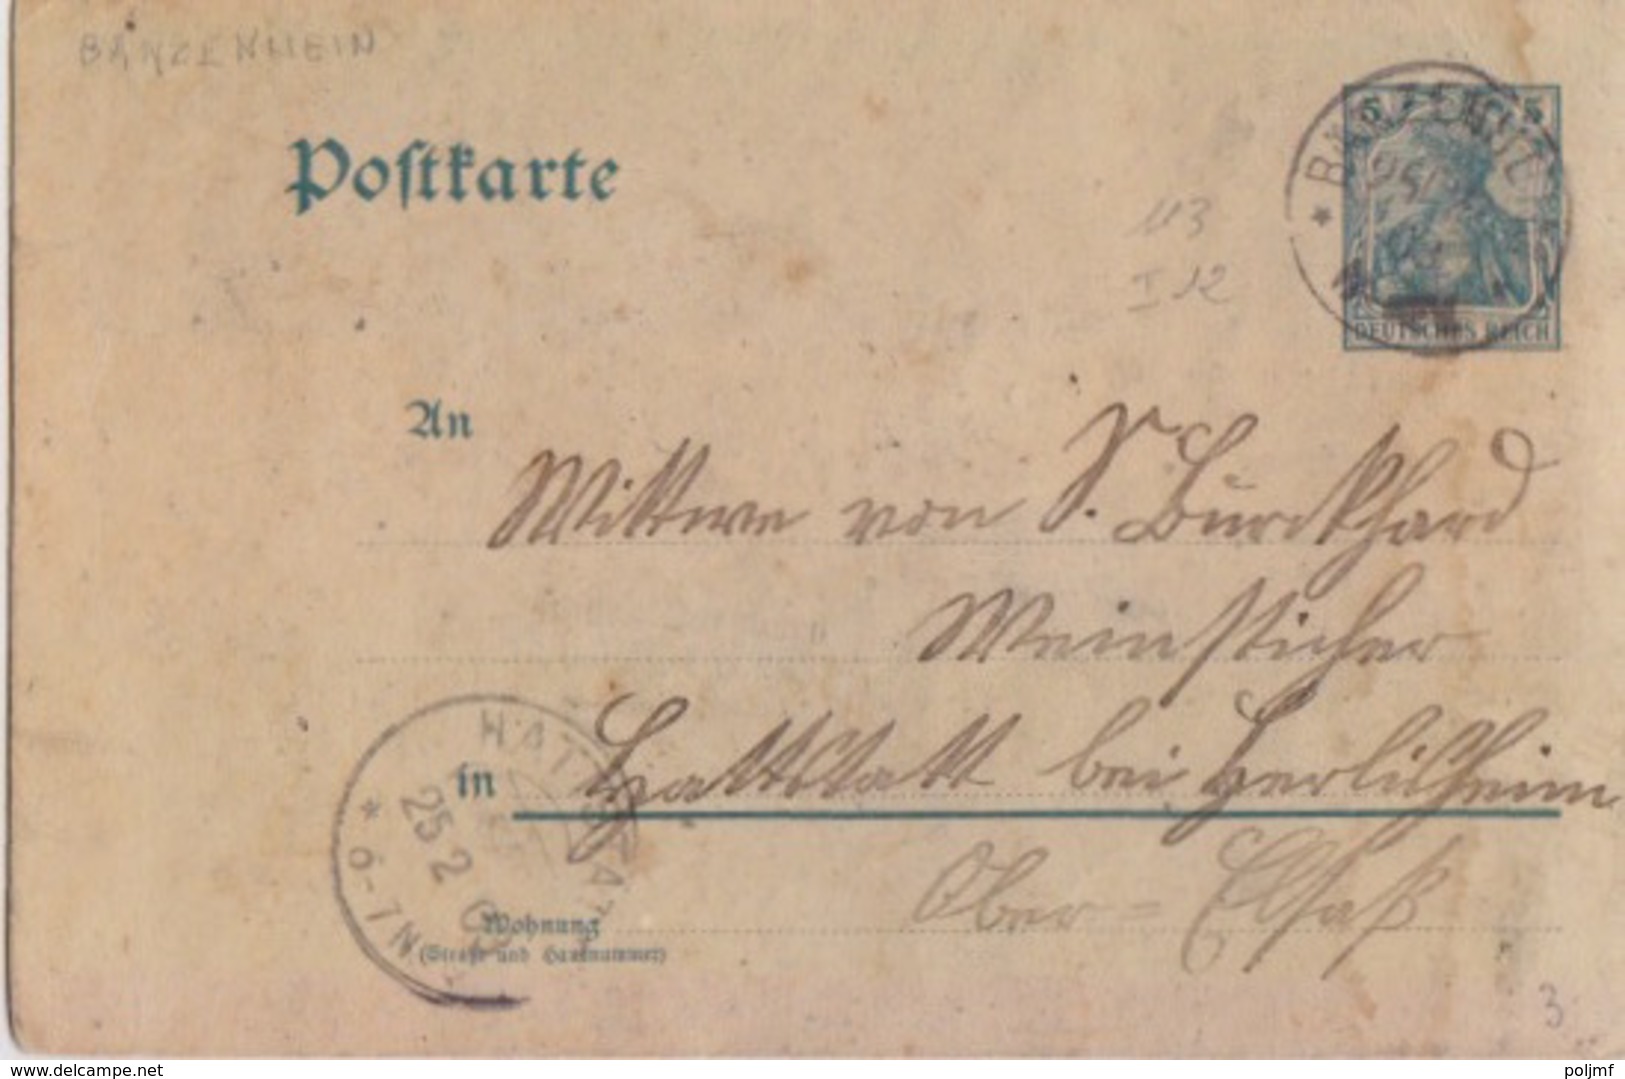 BANZENHEIN
Postkarte
5 5
DEUTSCHES REICH
113
I 12
An
Wittwe von S. Burckhard
Weinsticher
in Hattstatt bei Herlisheim
Ober-Elsaß
HATTSTATT
25 2
* 6-7N *
Wohnung
(Straße und Hausnummer)
3
www.delcampe.net
poljmf